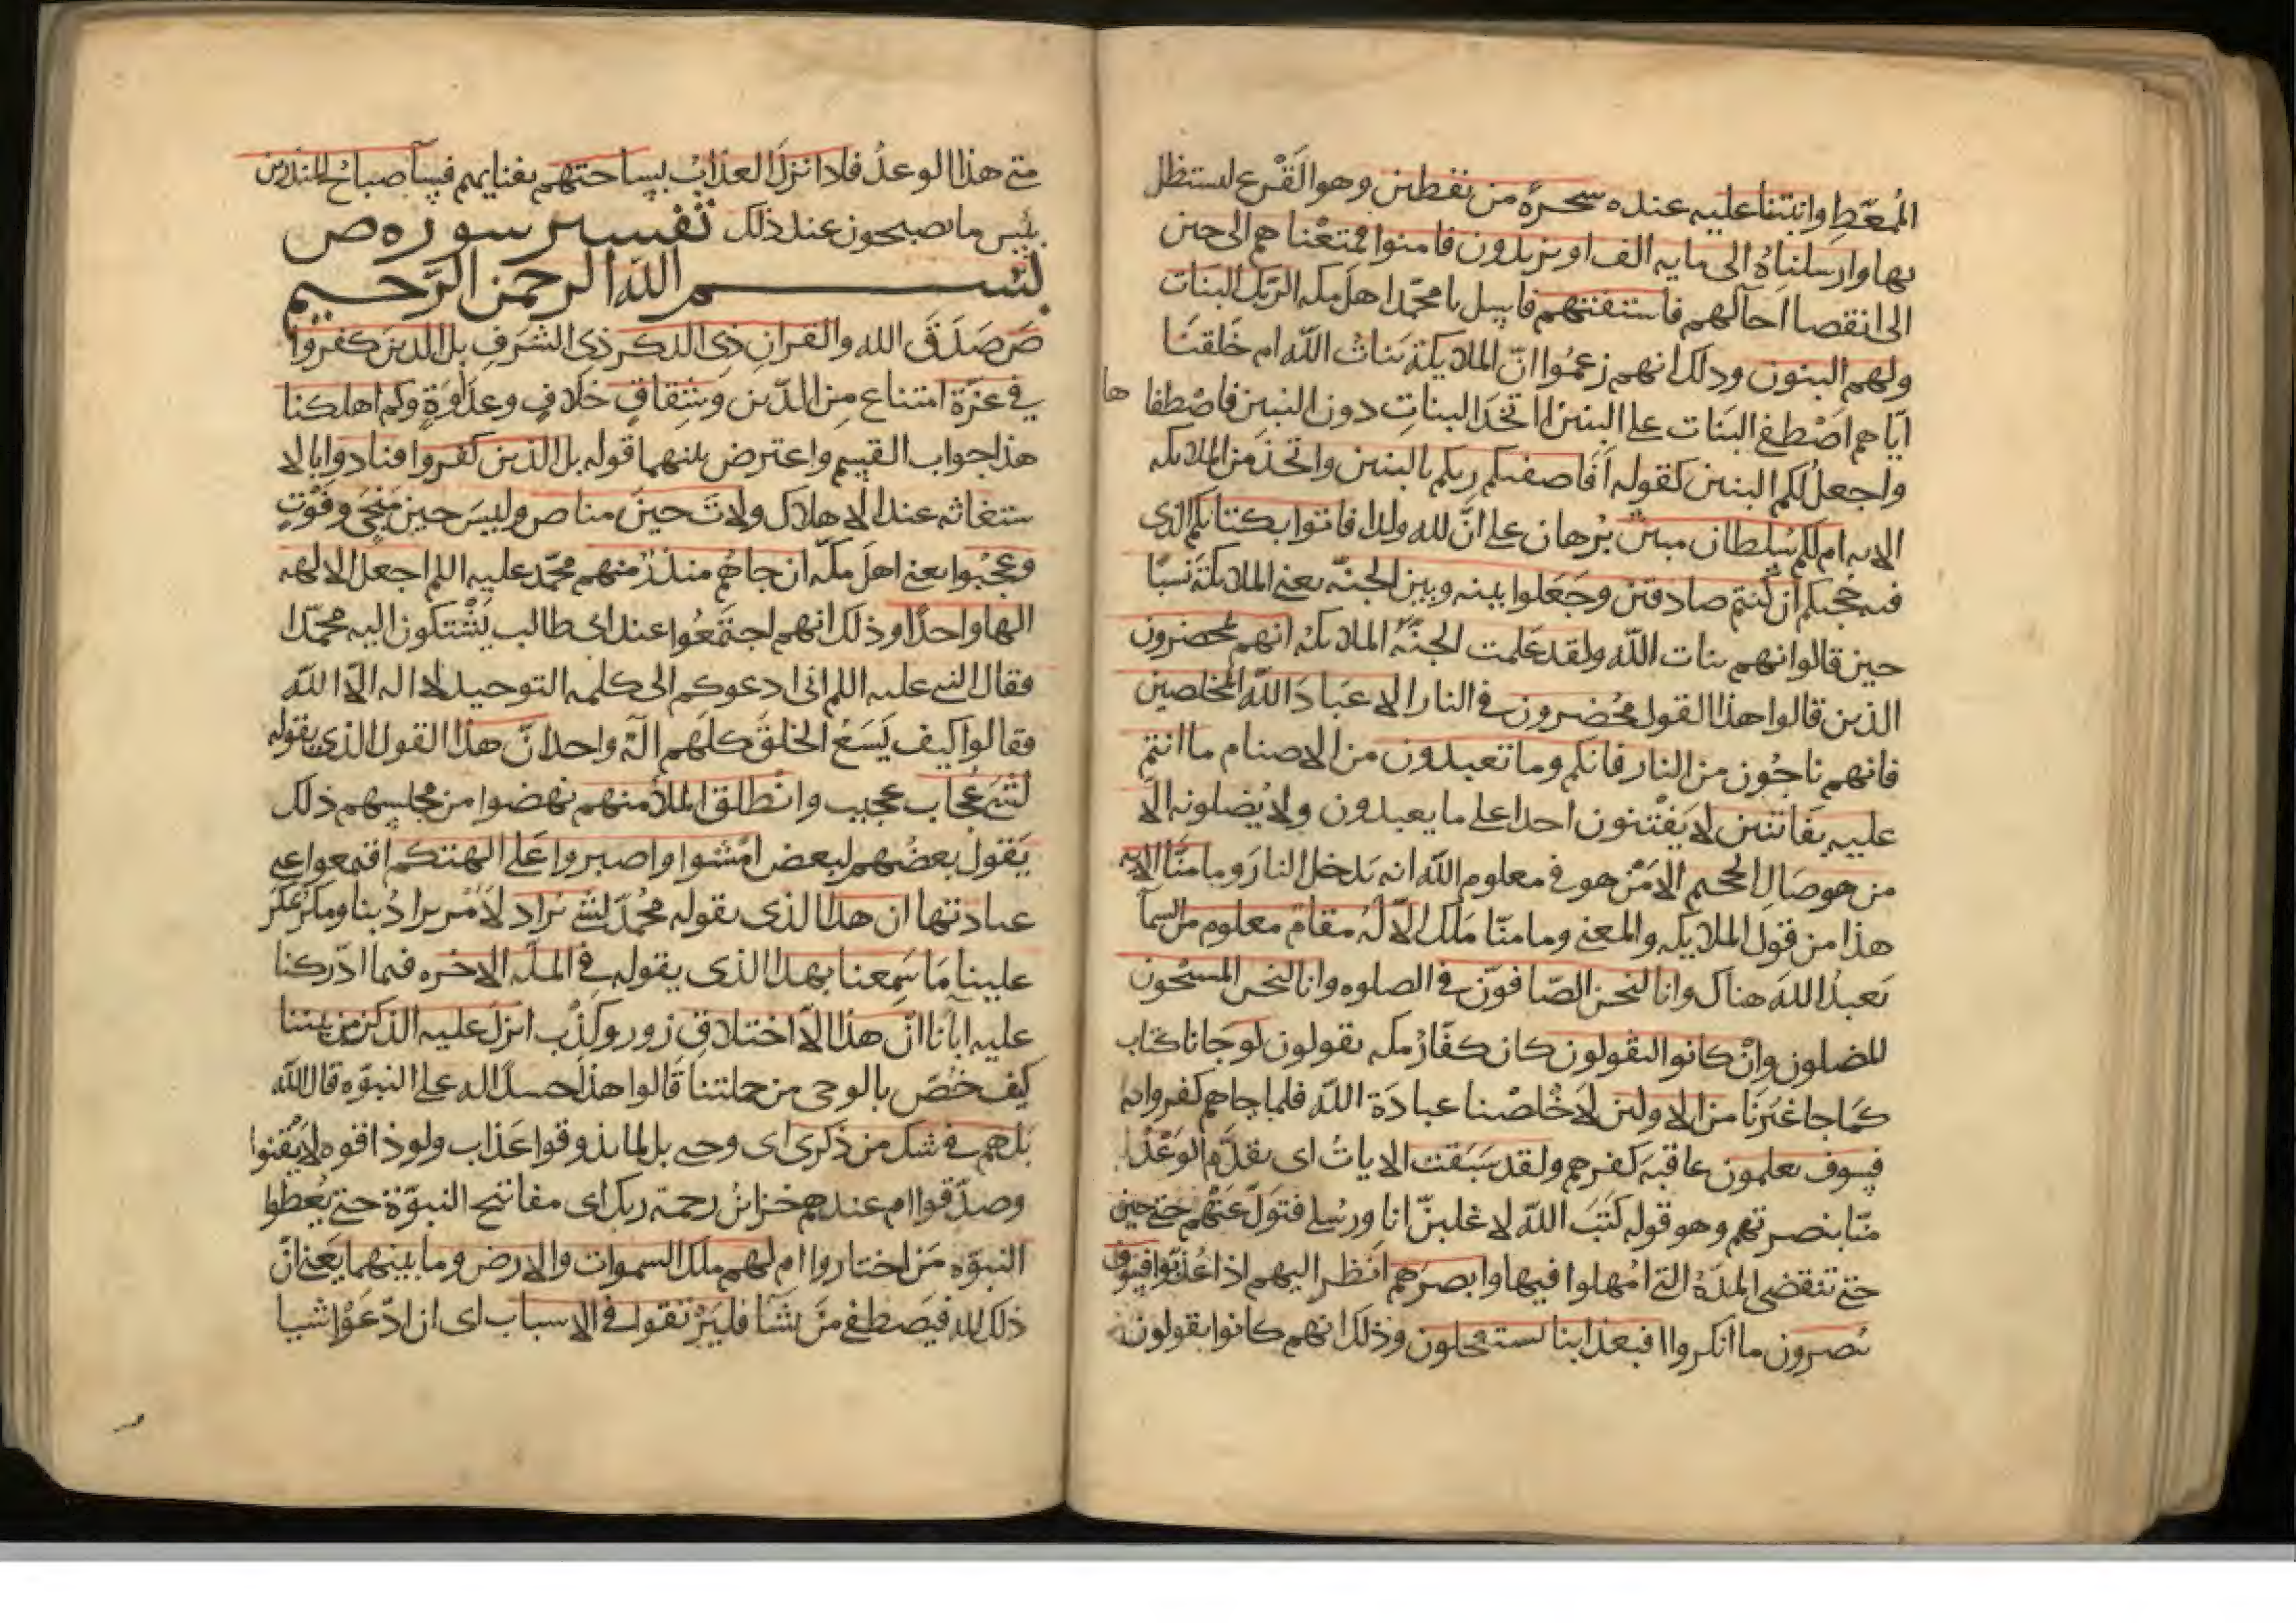 المُعَّطِ وانبتنا عليه عنده شجرةً من يقطين وهو القَرْع ليستظل
بها وارسلناهُ الى مايه الف او يزيدون فامنوا فمتعْناهم الى حين
الى انقضا اجالهم فاستفتهم فاسيل يا محمّد اهل مكه الربّك البنات
ولهم البنون وذلك انهم زعمُوا انّ الملايكة بناتُ اللّه ام خلقنَا
ايّاهم اَصْطفى البَنَات على البنين ااتخذ البناتِ دون البنين فاصْطفاها
واجعل لكم البنين كقوله اَفَاصفيكم ربكم بالبنين واتخذ من الملايكه
الايه ام لكم سُلطان مبين بُرهان على انَّ لله ولدا فاتوا بكتابكم الذى
فيه حجتكم ان كنتم صادقين وجَعَلوا بينه وبين الجنّه يعنى الملايكة نَسبًا
حين قالوا انهم بنات اللّه ولقد عَلِمت الجنَّهُ الملايكهُ انهم لمحضرون
الذين قالوا هذا القول محُضرون فى النار الا عبَادَ اللّه المخلصين
فانهم ناجُون من النار فانكم وما تعبدون من الاصنام ما انتم
عليه بفاتنين لا يَفْتِنون احدا على ما يعبدون ولا يُضلونه الّا
من هو صَالِ الجحيم الا مَنْ هو فى معلوم اللّه انه يَدخل النارَ وما منَّا الايه
هذا من قول الملايكه والمعنى وما منّا مَلك الّا لهُ مقام معلوم من السمآ
يَعبدُ اللهَ هناك وانا لنحن الصّافوّن فى الصلوه وانا لنحن المسبّحون
المصلون وانْ كانوا ليقولون كان كفّارُ مكه يقولون لو جانا كتاب
كَما جا غيَرنَا من الاولين لَاخْلصْنا عبادَة اللّه فلما جاهم كفروا به
فسوف يعلمون عاقبَة كفرهم ولقد سَبَقت الاياتُ اى تقدّم الوَعْدُ
منّا بنصرتهم وهو قوله كَتَبَ اللّه لاغلبنّ انا ورُسلى فتَولّ عَنْهُم حَتى حين
حتى تنقضى المدّهُ التى امُهلوا فيها وابصرَهم انْظر اليهم اذا عُذّبوا فسَوف
يُبصرون ما انكروا افبعذابنا يستعجلون وذلك انهم كانوا يقولون
متى هذا الوعدُ فاذا نزلَ العذابُ بِساحتهم بفنايهم فسآ صباحُ المنذرين
بئِس ما يصبحون عند ذلك تفسير سوره ص
بسم اللّه الرحمن الرَّحيم
ص صَدَقَ الله والقرانِ ذى الذكر ذى الشرَفِ بل الذين كفروا
فى عزّة امتناع مِن الدّين وشقاقٍ خلافٍ وعداوَةٍ وكم اهلكنا
هذا جواب القسم واعترض بينهما قوله بل الذين كفروا فنادوا بالا
ستغاثه عند الاهلاك ولاتَ حينَ مناص وليسَ حين مَنجَى وفَوْتٍ
وعجبُوا يعنى اهلَ مكّه ان جاهُم منذرٌ منهم محمّد عليه اللم اجعل الالهه
الها واحدًا وذلك انهم اجتمَعُوا عند ابى طالب يَشْتكون اليه محمّدا
فقال النبى عليه اللم انى ادعوكم الى كلمه التوحيد لا اله الّا اللّه
فقالوا كيف يَسَعُ الخلقَ كلهَم الهٌ واحد انّ هذا القول الذى يقوله
لشىَ عُجَاب عجيب وانْطلق الملأ منهم نهضوا من مجلسهم ذلك
يَقولُ بعضُهم لبعض امْشوا واصبروا عَلى الهتكم اقيموا على
عبادتها ان هذا الذى يقوله محُمّد لشىَ يُراد لاَمْر يرادُ بنا ومكرٌ عُكرَ
علينا مَا سَمِعنا بهذا الذى يقوله فى الملّه الاخره فيما ادّركنا
عليه اباَنا انْ هذا الّا اختلاقٌ زورٌ وكذبٌ انزلَ عليه الذكر من بيننا
كيف خُصّ بالوحى من جملتنا قَالوا هذا حسدًا له على النبوّه قال اللّه
بَل هم فى شك من ذكرى اى وحىى بل لما يذوقوا عَذاب ولو ذاقوه لاَيْقَنوا
وصدّقوا ام عندهم خزائنُ رحمة ربك اى مفاتيح النبوّة حتى يُعطوا
النبوّه مَن اختاروا ام لهم ملك السموات والارض وما بينهما يَعنى انّ
ذلك لله فيَصطفى مَن يَشَآ فليَرْتقوا فى الاسباب اى ان ادّعَوْا شيا